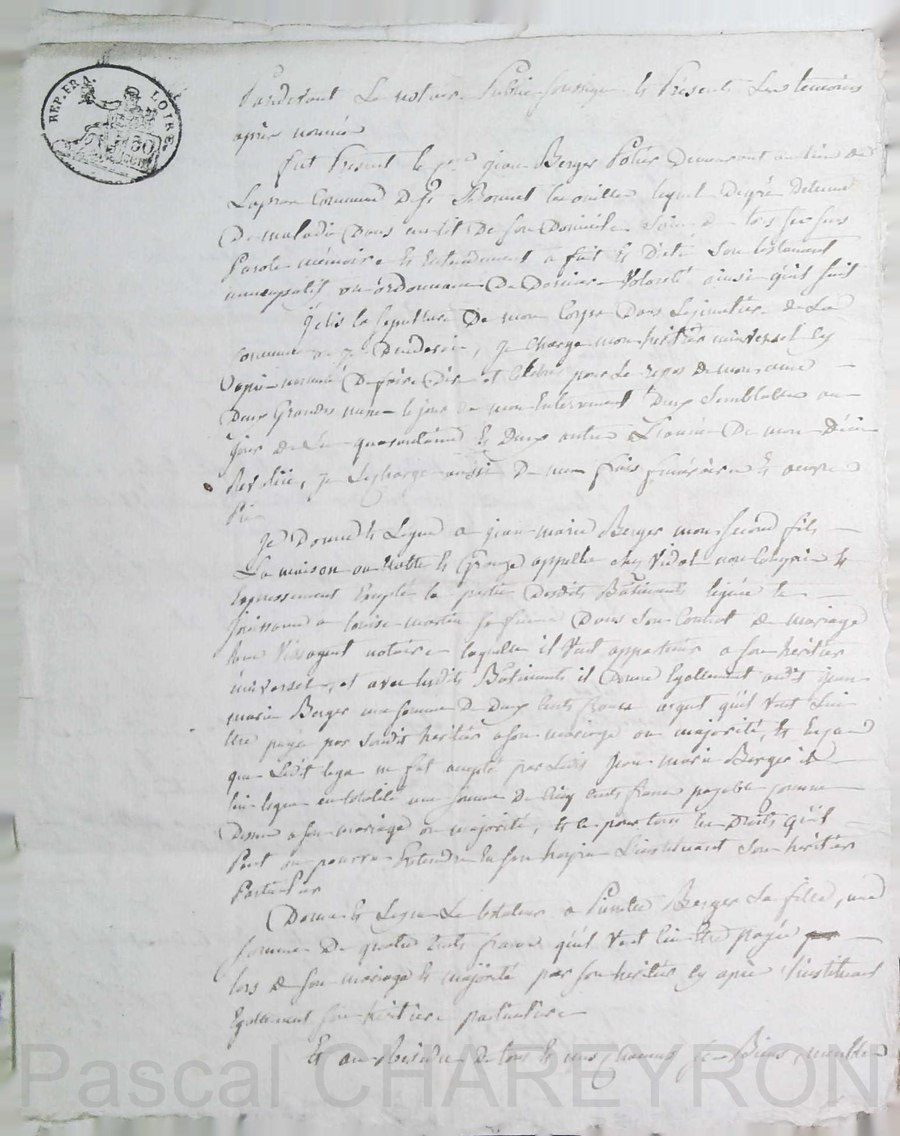 REP. FRA. LOIRE.
Pardevant Le notaire Public soussigné & Présents Les temoins
après nommés
fut Présent le jean Berger Potier Demeurant au lieu de
commune De St Bonnet lequel Detenu
De maladie Dans un lit De son Domicile
Parole mémoire & Entendement a fait & Dicté Son testament
nuncupatif ou ordonnance De Derniere Volonté ainsi qu'il suit
J'elis la sepulture De mon Corps Dans Le simetière de La
commune ou je Decederai, je charge mon heritier universel cy
après nommé De faire Dire et Celebrer pour Le repos de mon ame
Deux Grandes messes le jour de mon Enterrement Deux Semblables au
jour de La quarantaine & Deux autres De mon Décès
je Le charge aussi De mes frais funeraires & oeuvres
Pies
Je Donne & Legue a jean marie Berger mon second fils
La maison & Grange appellée chez Vidal non Compris &
Expressement Excepté la partie Desdits Bâtiments léguée &
a louise martin sa femme Dans Son Contrat de mariage
notaire laquelle il Veut appartenir a son heritier
universel, et avec lesdits Bâtiments il Donne Egallement audit jean
marie Berger une somme De Deux Cents francs argent qu'il Veut Lui
être payé par Sondit heritier a son mariage ou majorité, & En cas
que Ledit legs ne fut accepté par Ledit Jean marie Berger il
lui legue en totalité une somme De Cinq Cents francs payable comme
Dessus a son mariage ou majorité, & ce pour tous les Droits qu'il
Peut ou pourra Pretendre En son hoirie L'instituant Son heritier
Particulier
Donne & Legue Le testateur a Berger Sa fille, une
somme De quatre Cents francs qu'il Veut lui être payée
lors de son mariage & majorité par son heritier cy après L'instituant
Egallement son heritiere particuliere
Et au Residu De tous & uns chacuns Biens, meubles
Pascal CHAREYRON